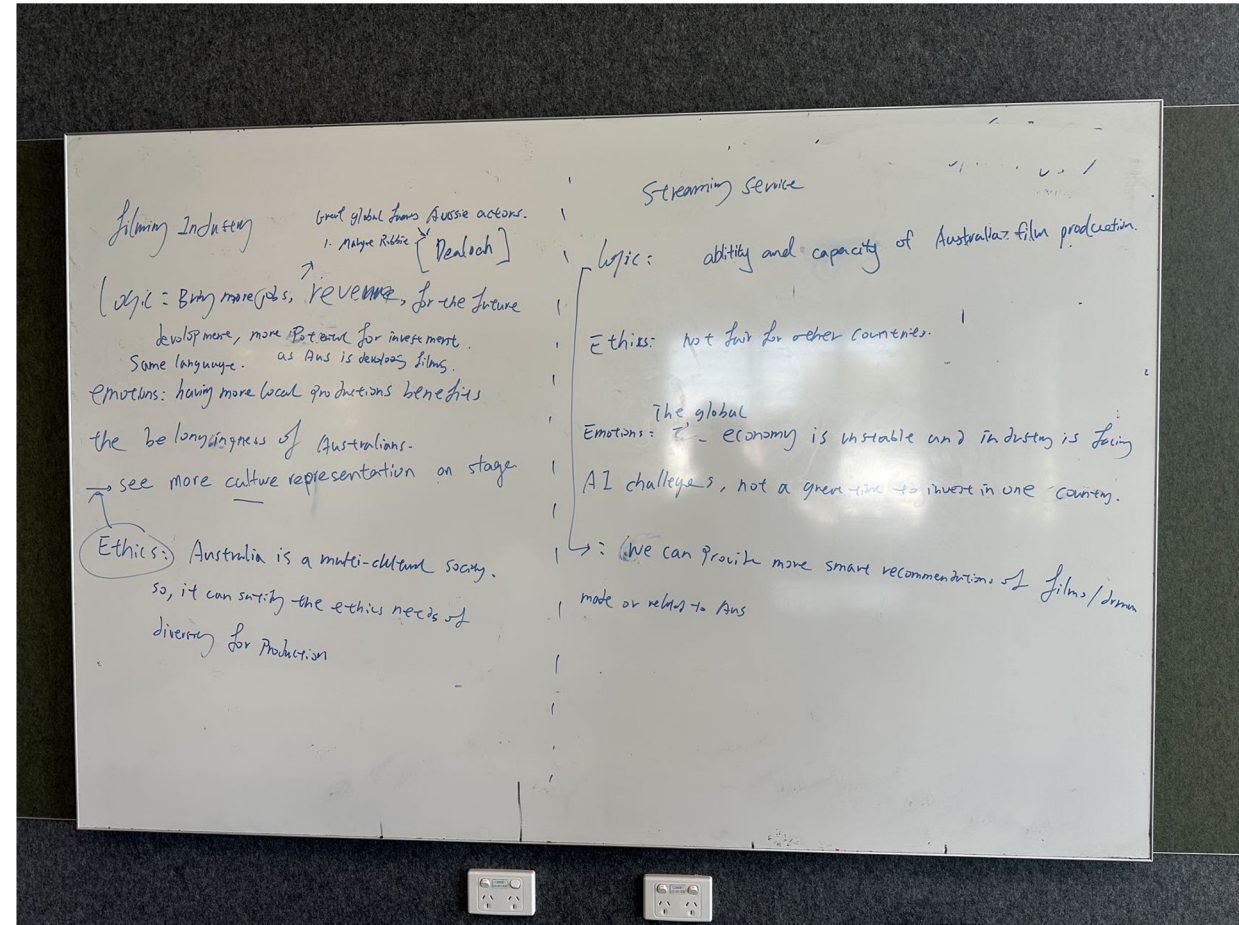 Filming Industry
Great global famous Aussie actors.
1. Malgre Robbie [Dealoch]
Logic: Bring more jobs, revenue, for the future
development, more Potential for investment.
Same language. as Aus is developing films.
emotions: having more local productions benefits
the belongingness of Australians.
→ see more culture representation on stage
Ethics: Australia is a multi-cultural society.
so, it can satisfy the ethics needs of
diversity for Production
Streaming Service
Logic: ability and capacity of Australia's film production.
Ethics: Not fair for other countries.
The global
Emotions: economy is unstable and industry is facing
AI challenges, not a great time to invest in one country.
: We can provide more smart recommendations of films/drama
made or related to Aus